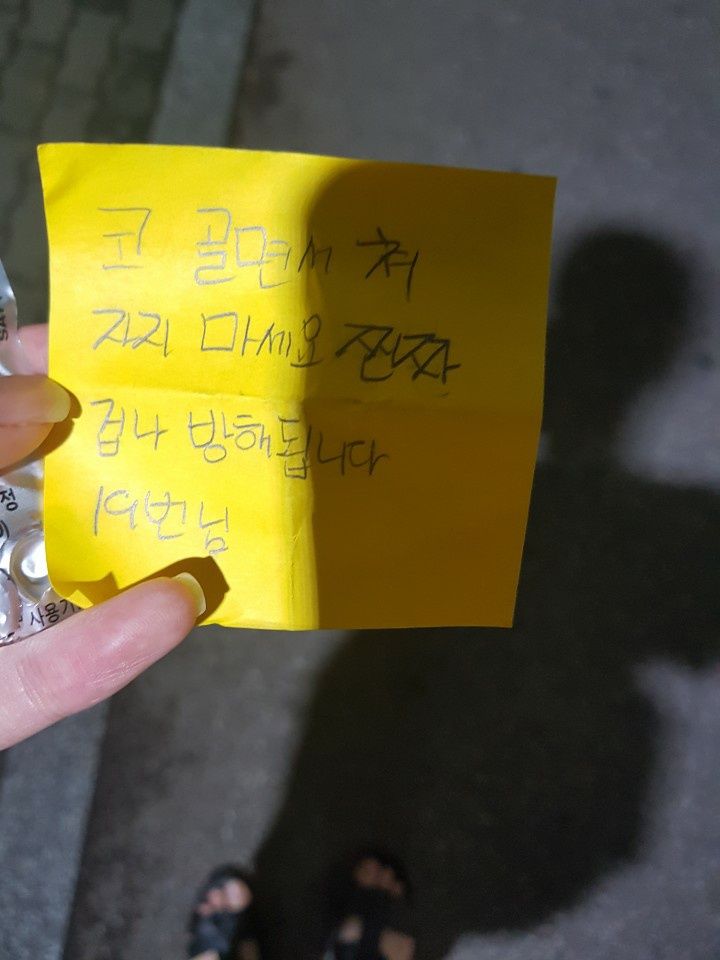 코 골면서 쳐
자지 마세요 진짜
겁나 방해됩니다
19번님
정
사용기